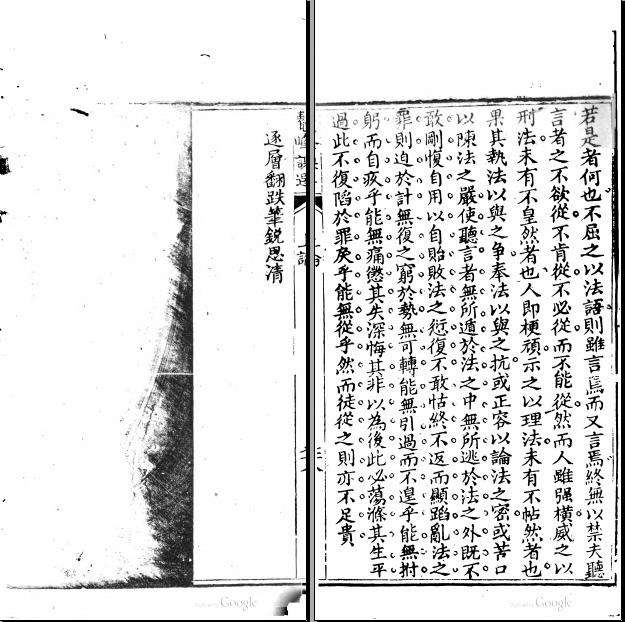 若是者何也不屈之以法語則雖言焉而又言焉終無以禁夫聽
言者之不欲從不肯從不必從而不能從然而人雖强橫威之以
刑法未有不皇然者也人即梗頑示之以理法未有不帖然者也
果其執法以與之爭奉法以與之抗或正容以論法之密或苦口
以陳法之嚴使聽言者無所遁於法之中無所逃於法之外既不
敢剛愎自用以自貽敗法之愆復不敢怙終不返而顯蹈亂法之
罪則迫於計無復之窮於勢無可轉能無引過而不遑乎能無拊
躬而自疚乎能無痛懲其失深悔其非以為後此必蕩滌其生平
過此不復陷於罪戾乎能無從乎然而徒從之則亦不足貴
上論
逐層翻跌筆銳思清
Digitized by Google
Digitized by Google